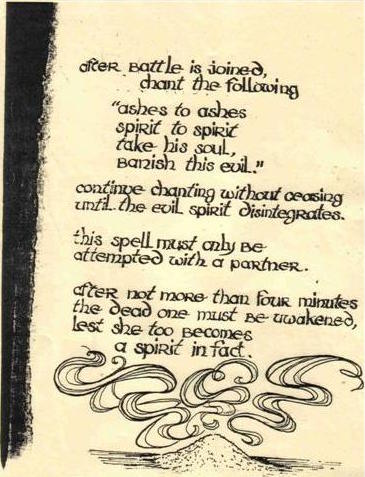 after battle is joined,
chant the following
"ashes to ashes
spirit to spirit
take his soul,
banish this evil."
continue chanting without ceasing
until the evil spirit disintegrates.
this spell must only be
attempted with a partner.
after not more than four minutes
the dead one must be awakened,
lest she too becomes
a spirit in fact.